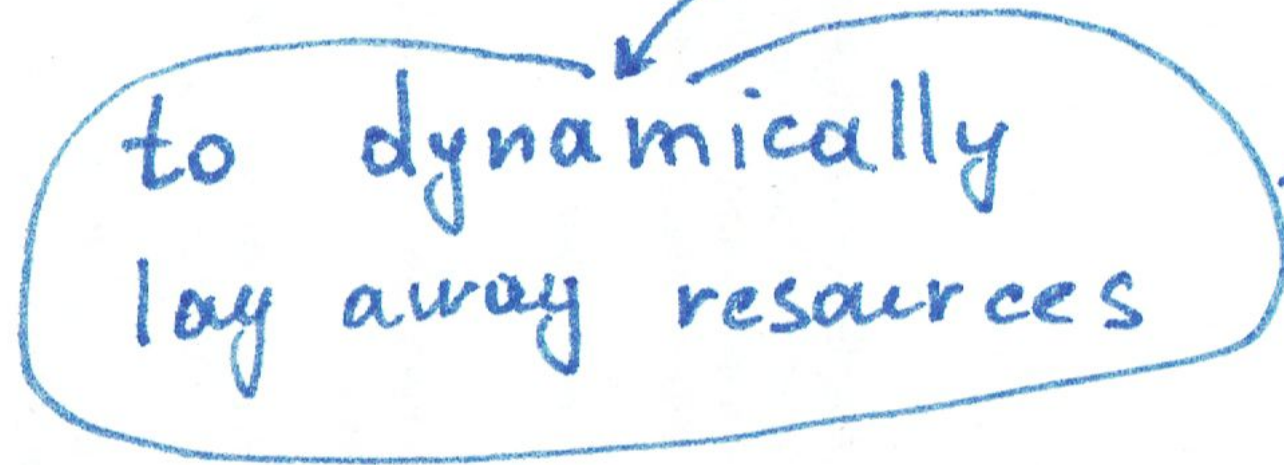 to dynamically
lay away resources